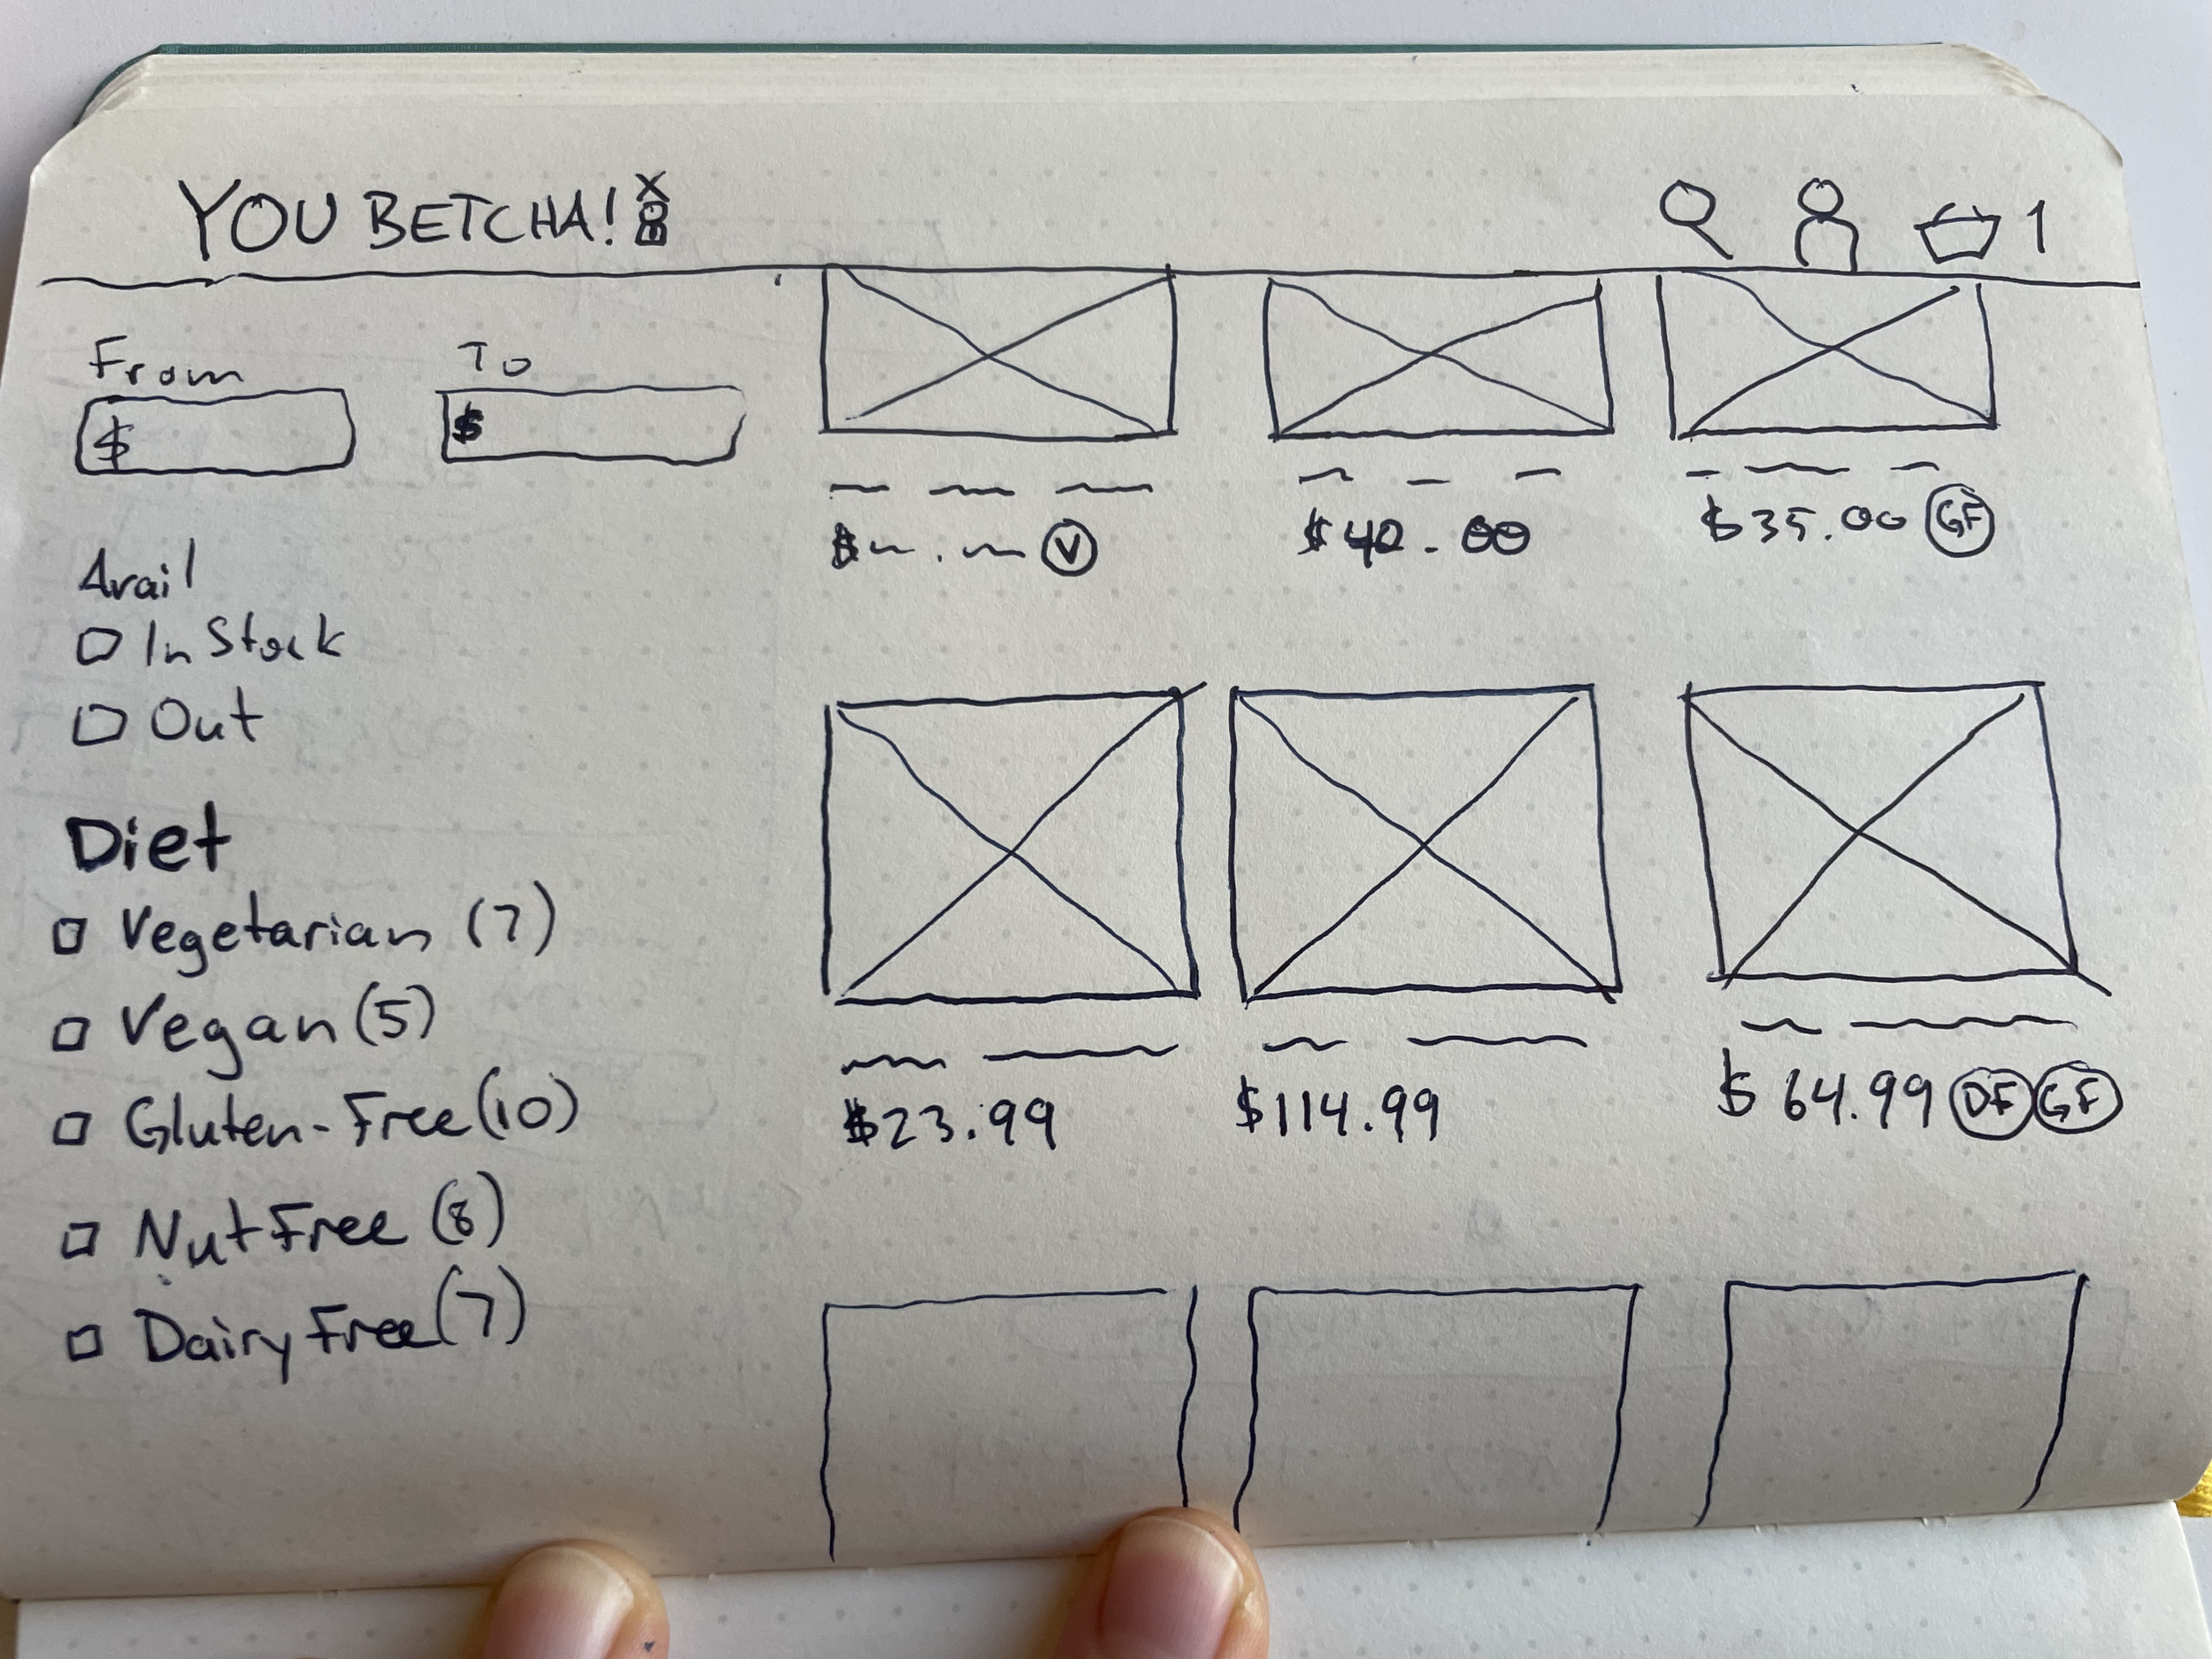 YOU BETCHA!
1
From
To
$
$
Avail
In Stock
Out
Diet
Vegetarian (7)
Vegan (5)
Gluten-Free (10)
Nut Free (8)
Dairy Free (7)
$ . V
$40.00
$35.00 GF
$23.99
$114.99
$64.99 DF GF